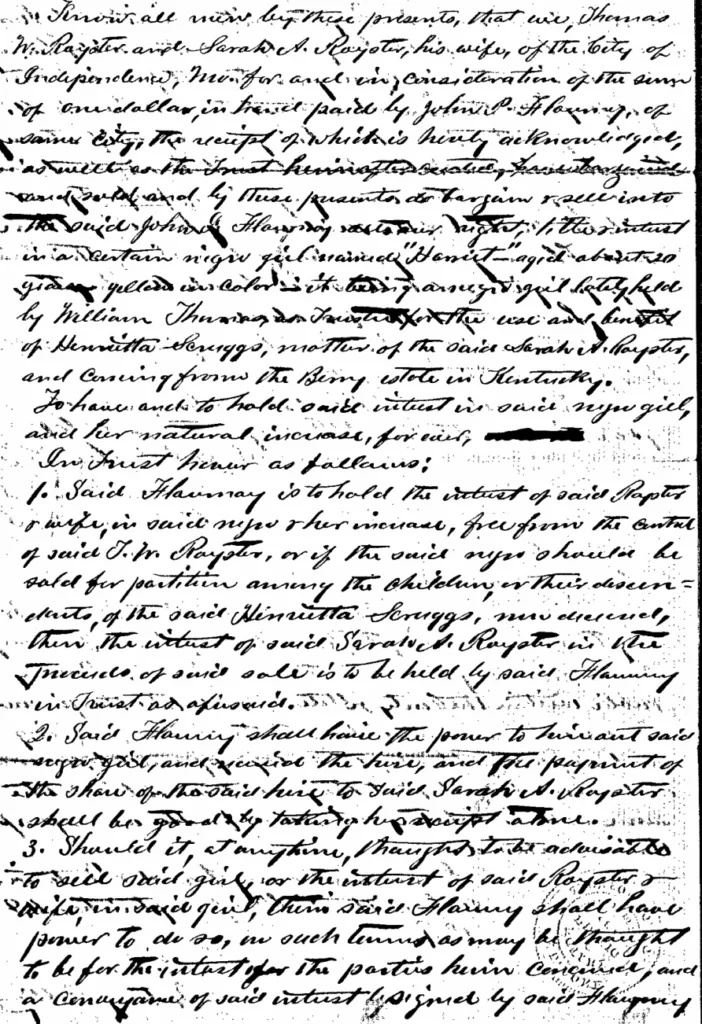 Know all men by these presents, that we, Thomas
W. Royster and Sarah A. Royster, his wife, of the City of
Independence, Mo. for and in consideration of the sum
of one dollar, in hand paid by John P. Flournoy, of
same city, the receipt of which is hereby acknowledged,
as well as the trust hereinafter created,
and sold and by these presents do bargain & sell unto
the said John P. Flournoy our right, title & interest
in a certain negro girl named "Harriet" aged about 20
years yellow in color it being a negro girl lately held
by William Thomas, as Trustee for the use and benefit
of Henrietta Scruggs, mother of the said Sarah A. Royster,
and coming from the Berry estate in Kentucky.
To have and to hold said interest in said negro girl,
and her natural increase, for ever,
In Trust however as follows;
1. Said Flournoy is to hold the interest of said Royster
& wife, in said negro & her increase, free from the control
of said T. W. Royster, or if the said negro should be
sold for partition among the children, or their descen=
dants, of the said Henrietta Scruggs, now deceased,
then the interest of said Sarah A. Royster in the
proceeds of said sale is to be held by said Flournoy
in Trust as aforesaid.
2. Said Flournoy shall have the power to hire out said
negro girl, and receive the hire, and the payment of
the share of the said hire to said Sarah A. Royster
shall be good by taking her receipt alone.
3. Should it, at anytime, thought, to be advisable
to sell said girl, or the interest of said Royster &
wife, in said girl, then said Flournoy shall have
power to do so, on such terms as may be thought
to be for the interest of the parties herein concerned; and
a conveyance of said interest signed by said Flournoy